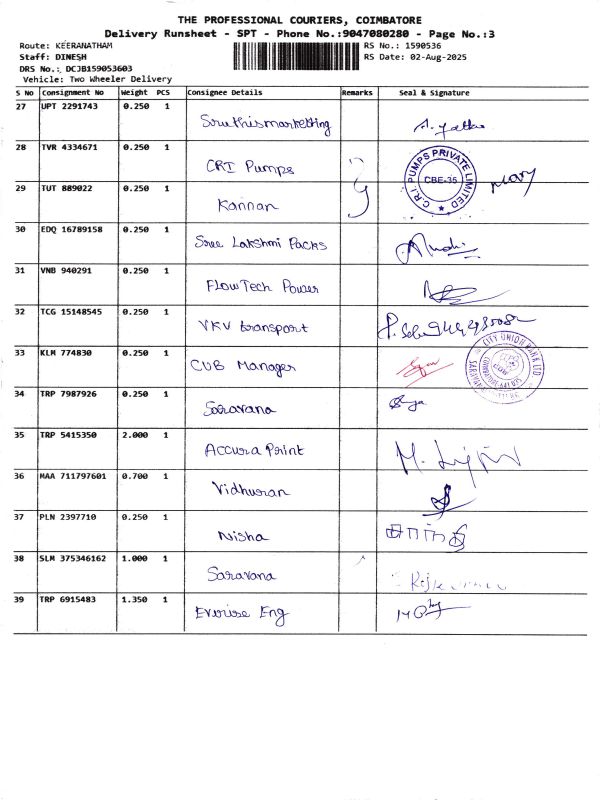 THE PROFESSIONAL COURIERS, COIMBATORE
Delivery Runsheet - SPT - Phone No.:9047080280 - Page No.:3
Route: KEERANATHAM RS No.: 1590536
Staff: DINESH RS Date: 02-Aug-2025
DRS No.: DCJB159053603
Vehicle: Two Wheeler Delivery
S No Consignment No Weight PCS Consignee Details Remarks Seal & Signature
27 UPT 2291743 0.250 1 Sruthismarketting
28 TVR 4334671 0.250 1 CRI Pumps C.R.I. PUMPS PRIVATE LIMITED CBE-35
29 TUT 889022 0.250 1 Kannan
30 EDQ 16789158 0.250 1 Sree Lakshmi Packs
31 VNB 940291 0.250 1 FlowTech Power
32 TCG 15148545 0.250 1 VKV transport
33 KLM 774830 0.250 1 CUB Manager CITY UNION BANK LTD
34 TRP 7987926 0.250 1 Saravana
35 TRP 5415350 2.000 1 Accura Print
36 MAA 711797601 0.700 1 Vidhuran
37 PLN 2397710 0.250 1 Nisha
38 SLM 375346162 1.000 1 Saravana
39 TRP 6915483 1.350 1 Eng